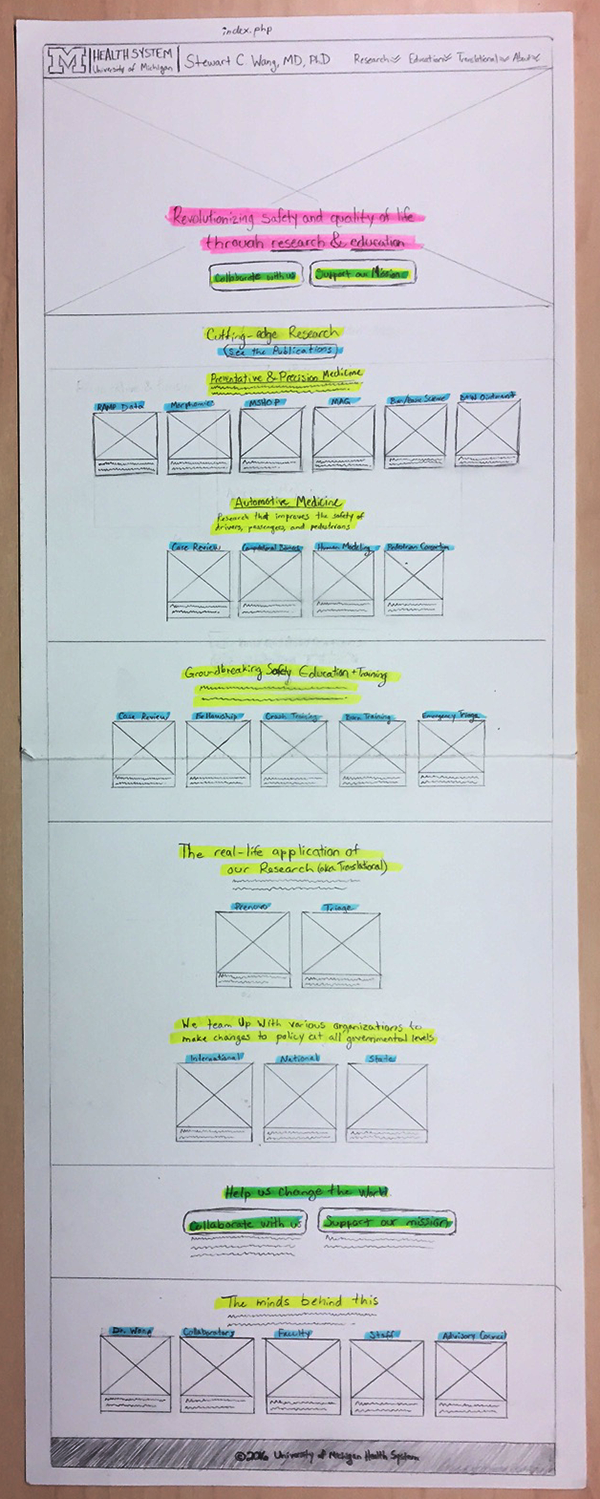 index.php
M HEALTH SYSTEM
University of Michigan
Stewart C Wang, MD, PhD
Research Education Translational About
Revolutionizing safety and quality of life
through research & education
Collaborate with us Support our Mission
Cutting-edge Research
(See the Publications)
Preventative & Precision Medicine
RAMP Data Morphomic MSHOP MAG
Automotive Medicine
Research that improves the safety of
drivers, passengers, and pedestrians
Case Reviews Human Modeling Pedestrian Consortium
Groundbreaking Safety Education + Training
Case Review Fellowship Crash Training Burn Training Emergency Triage
The real-life application of
our Research (aka Translational)
Prenovo Triage
We team Up With various organizations to
make changes to policy at all governmental levels
International National State
Help us change the World
Collaborate with us Support our mission
The minds behind this
Dr. Wang Collaborators Faculty Staff Advisory Council
©2016 University of Michigan Health System